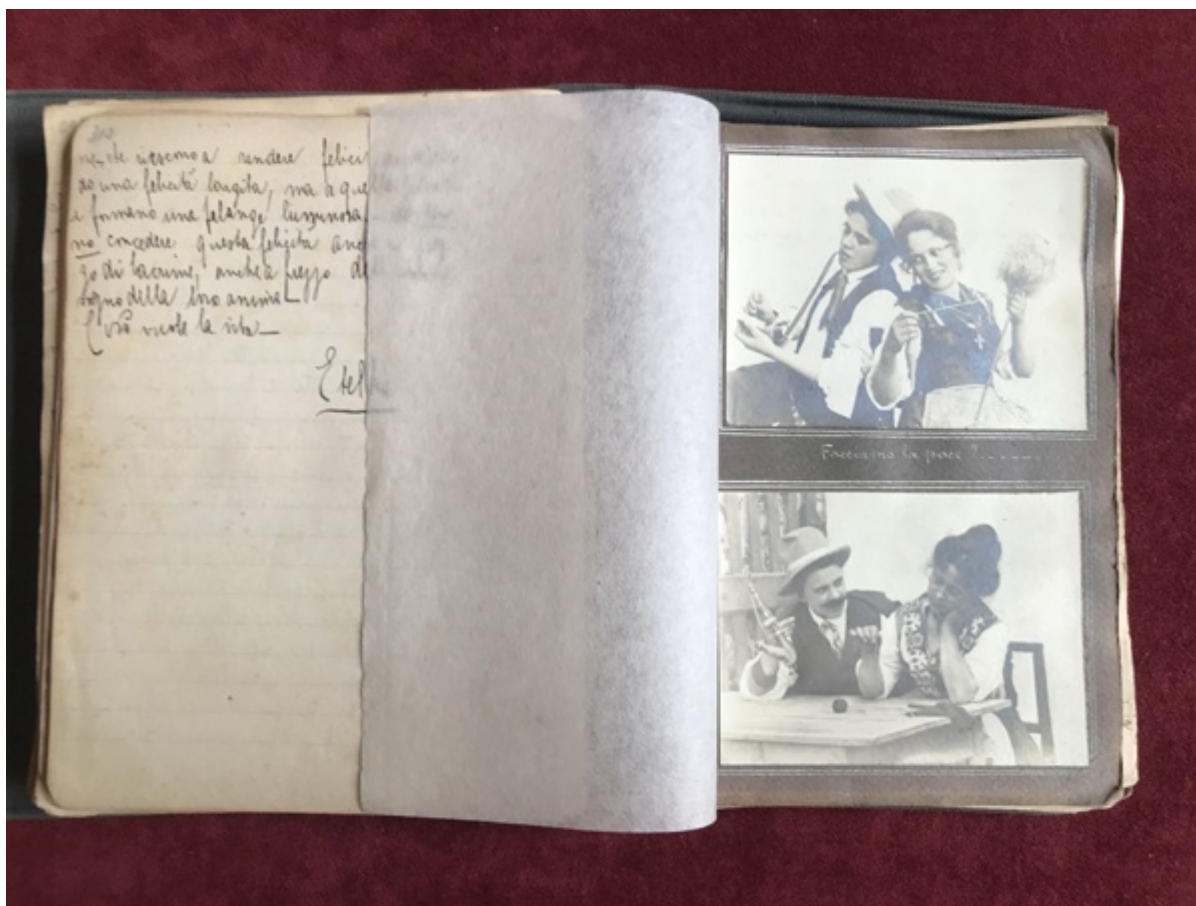 202
ne, che riescono a rendere felici
do una felicità largita, ma a que
e formano una falange luminosa,
no concedere questa felicità anc
zo di lacrime, anche a prezzo de
sogno della loro anima_
Così vuole la vita_
Etel
Facciamo la pace ?.......